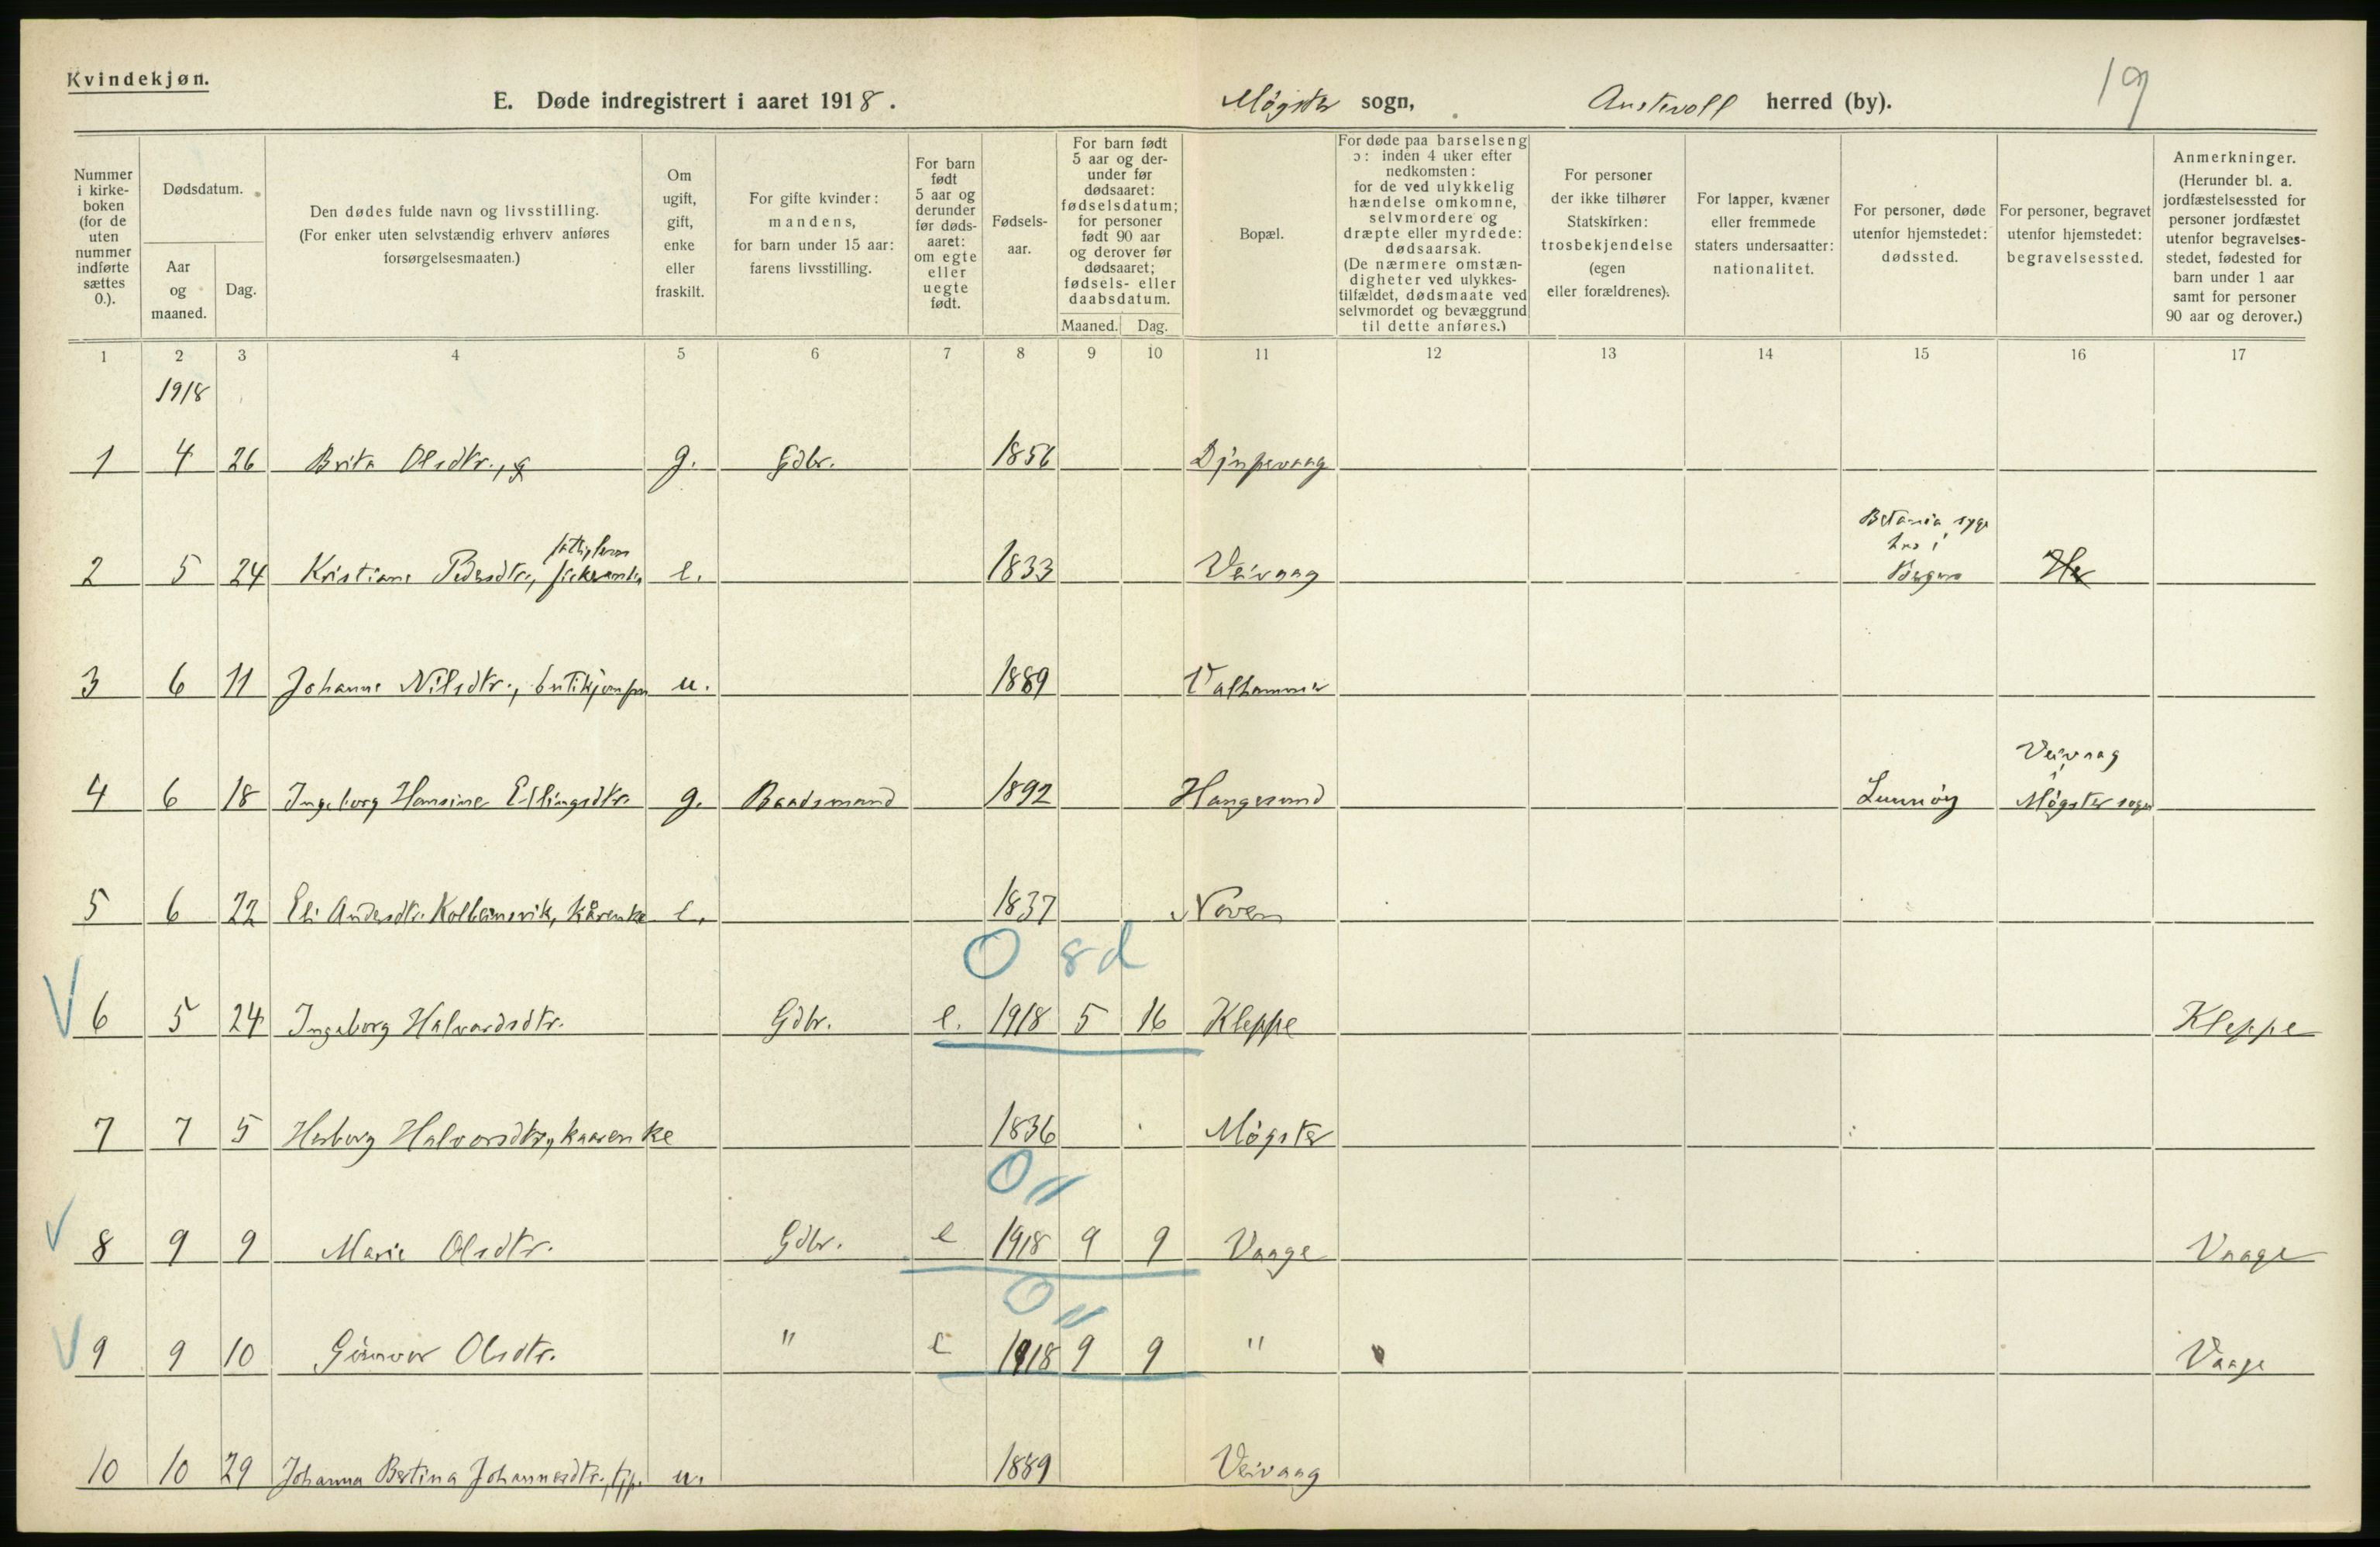 Kvindekjøn.
19
E. Døde indregistrert i aaret 1918. Møgster sogn, Austevoll herred (by).
Nummer i kirke- boken (for de uten nummer indførte sættes 0.).
Dødsdatum.
Aar og maaned.
Dag.
Den dødes fulde navn og livsstilling. (For enker uten selvstændig erhverv anføres forsørgelsesmaaten.)
Om ugift, gift, enke eller fraskilt.
For gifte kvinder: mandens, for barn under 15 aar: farens livsstilling.
For barn født 5 aar og derunder før døds- aaret: om egte eller uegte født.
Fødsels- aar.
For barn født 5 aar og der- under før dødsaaret: fødselsdatum; for personer født 90 aar og derover før dødsaaret; fødsels- eller daabsdatum.
Maaned. Dag.
Bopæl.
For døde paa barselseng ɔ: inden 4 uker efter nedkomsten: for de ved ulykkelig hændelse omkomne, selvmordere og dræpte eller myrdede: dødsaarsak. (De nærmere omstæn- digheter ved ulykkes- tilfældet, dødsmaate ved selvmordet og bevæggrund til dette anføres.)
For personer der ikke tilhører Statskirken: trosbekjendelse (egen eller forældrenes).
For lapper, kvæner eller fremmede staters undersaatter: nationalitet.
For personer, døde utenfor hjemstedet: dødssted.
For personer, begravet utenfor hjemstedet: begravelsessted.
Anmerkninger. (Herunder bl. a. jordfæstelsessted for personer jordfæstet utenfor begravelses- stedet, fødested for barn under 1 aar samt for personer 90 aar og derover.)
1 2 3 4 5 6 7 8 9 10 11 12 13 14 15 16 17
1918
1 4 26 Brita Olsdtr., g g. Gdbr. 1856 Djupevaag
2 5 24 Kristiane Pedersdtr., e. 1833 Veivaag Betania syge hus i Bergen
3 6 11 Johanne Nilsdtr., butikjomfru u. 1889 Valhammer
4 6 18 Ingeborg Hansine Ellingsdtr. g. Baadsmand 1892 Haugesund Lunnøy Veivaag i Møgster sogn
5 6 22 Eli Andersdtr. Kolbeinsvik, kårenke e. 1837 Noven
O 8 d
V 6 5 24 Ingeborg Halvardsdtr. Gdbr. e. 1918 5 16 Kleppe Kleppe
7 7 5 Herborg Halvorsdtr., kaarenke 1836 Møgster
O "
V 8 9 9 Marie Olsdtr. Gdbr. e 1918 9 9 Vaage Vaage
O "
V 9 9 10 Gunvor Olsdtr. " e 1918 9 9 " Vaage
10 10 29 Johanna Bertina Johannesdtr., tjp. u. 1889 Veivaag